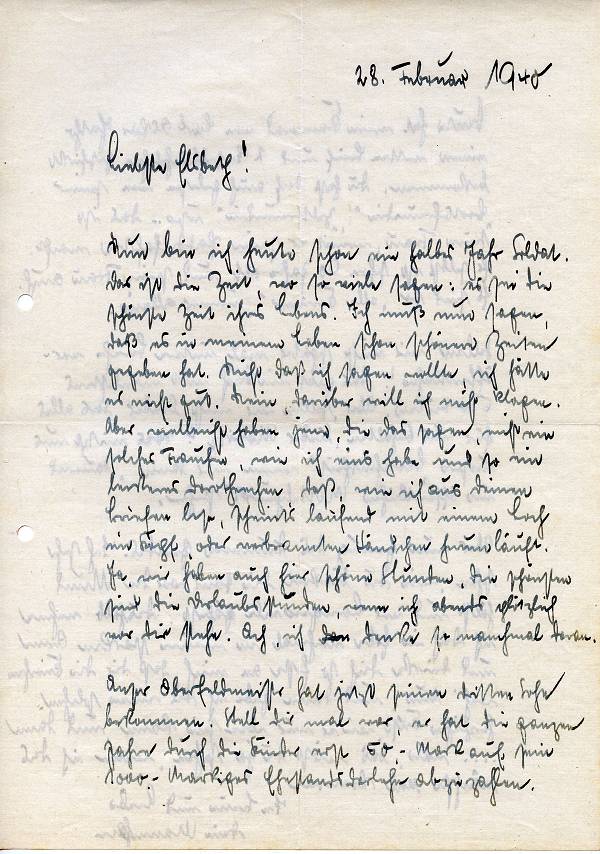 28. Februar 1940
Liebste Elsbeth!
Nun bin ich heute schon ein halbes Jahr Soldat.
Das ist die Zeit, wo so viele sagen: es sei die
schönste Zeit ihres Lebens. Ich muß nun sagen,
daß es in meinem Leben schon schönere Zeiten
gegeben hat. Nicht daß ich sagen wollte, ich hätte
es nicht gut. Nein, darüber will ich nicht klagen.
Aber vielleicht haben jene, die das sagen, nicht ein
solches Frauchen, wie ich eins habe und so ein
Dorotheechen daß, wie ich aus deinen
Briefen lese, scheint's laufend mit einem Loch
im Kopf, oder verbrannten Händchen herumläuft.
Ja, wir haben auch hier schöne Stunden, die schönsten
sind die Urlaubsstunden, wenn ich abends plötzlich
vor dir stehe. Ach, ich denke so manchmal daran.
Unser Oberfeldmeister hat jetzt seinen dritten Sohn
bekommen. Stell dir mal vor, er hat die ganzen
Jahre durch die Kinder erst 50,- Mark auf sein
1000.- Markiges Ehestandsdarlehn abzuzahlen.